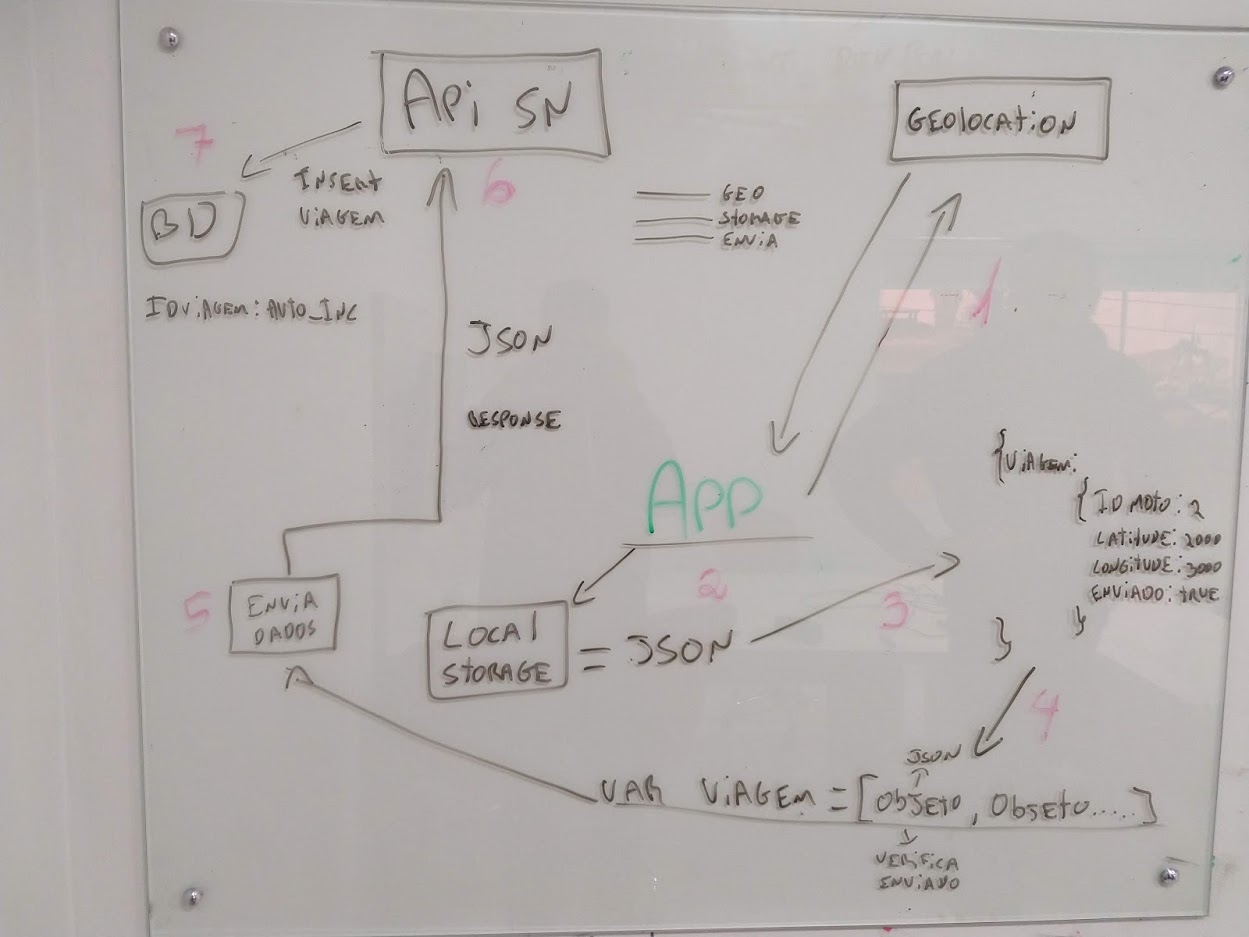 Api SN
GEOLOCATION
7
INSERT
VIAGEM
6
BD
GEO
STORAGE
ENVIA
1
IDVIAGEM: AUTO_INC
JSON
RESPONSE
App
{VIAGEM:
{ID MOTO: 2
LATITUDE: 2000
LONGITUDE: 3000
ENVIADO: TRUE
}
}
2
3
5
ENVIA
DADOS
LOCAL
STORAGE
= JSON
4
JSON
VAR VIAGEM = [OBJETO, OBJETO.....]
VERIFICA
ENVIADO